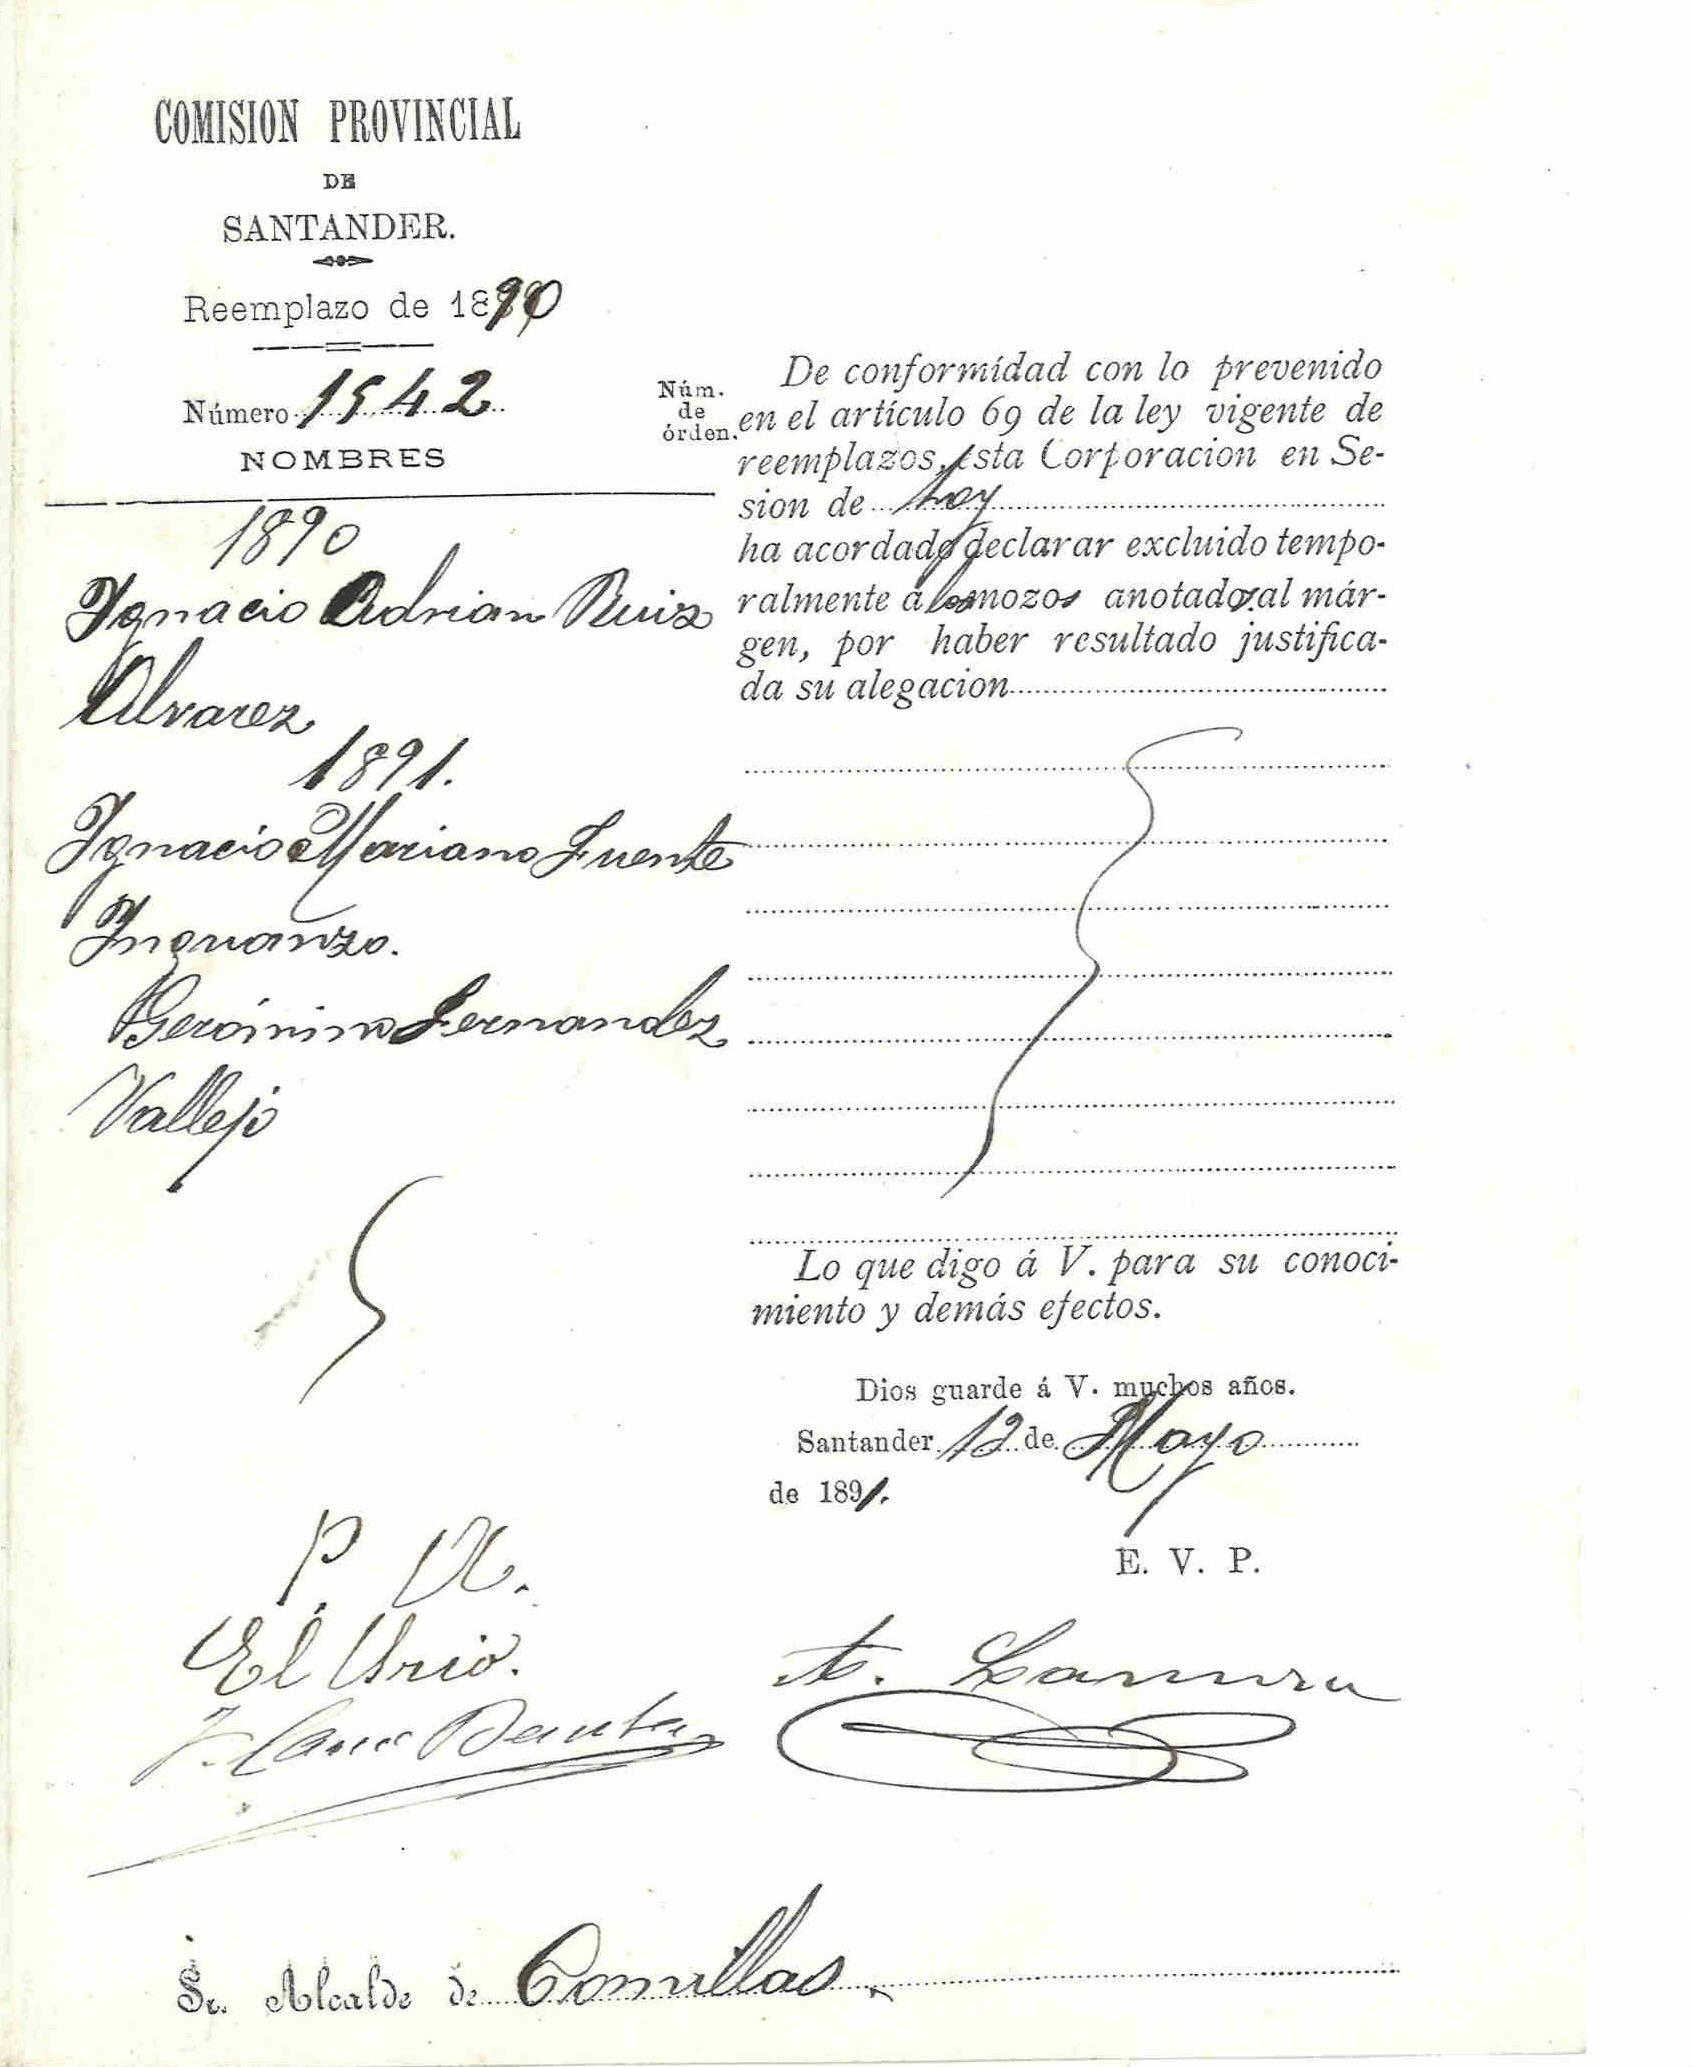 COMISION PROVINCIAL
DE
SANTANDER.
Reemplazo de 1890
Número 1542
NOMBRES
Núm.
de
órden.
1890
Ygnacio Adrian Ruiz
Alvarez
1891.
Ygnacio Mariano Fuente
Ynguanzo.
Gerónimo Fernandez
Vallejo
De conformidad con lo prevenido
en el artículo 69 de la ley vigente de
reemplazos, esta Corporacion en Se-
sion de hoy
ha acordado declarar excluido tempo-
ralmente á los mozos anotados al már-
gen, por haber resultado justifica-
da su alegacion
Lo que digo á V. para su conoci-
miento y demás efectos.
Dios guarde á V. muchos años.
Santander 12 de Mayo
de 1891.
E. V. P.
P. A.
El Srio.
A.
Sr. Alcalde de Comillas.